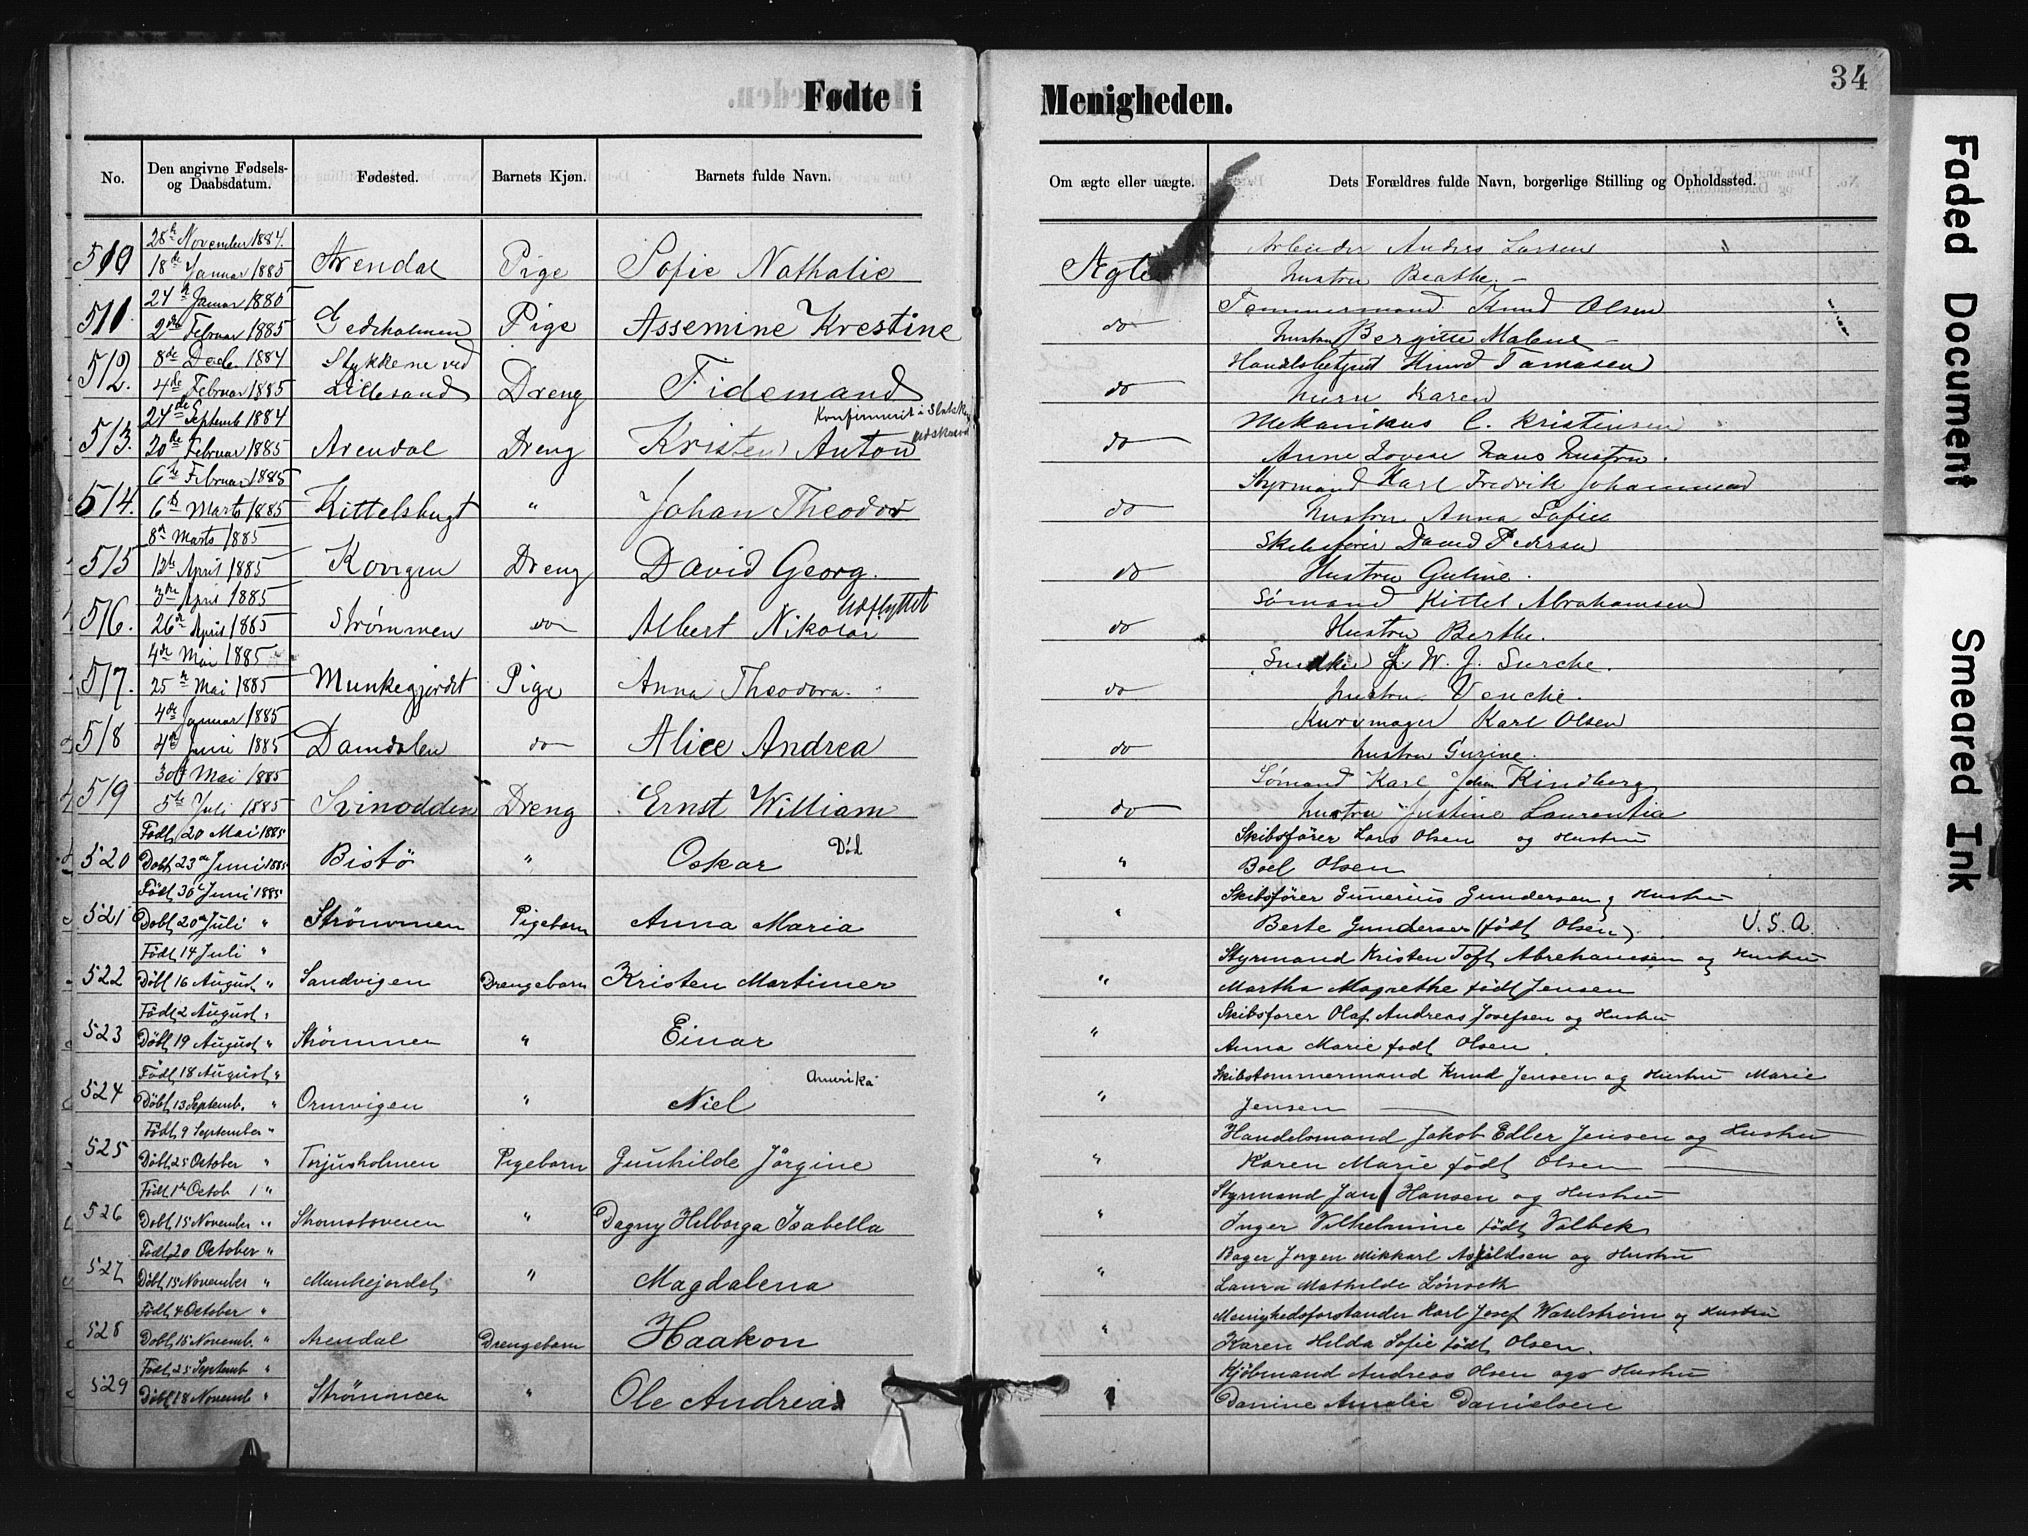 34
Fødte i Menigheden.
No. Den angivne Fødsels- og Daabsdatum. Fødested. Barnets Kjøn. Barnets fulde Navn. Om ægte eller uægte. Dets Forældres fulde Navn, borgerlige Stilling og Opholdssted.
28 November 1884. Arbeider Anders Larsen "
510 18de Januar 1885 Arendal Pige Sofie Nathalie Ægte hustru Beathe
24 Januar 1885 Tømmermand Knud Olsen
511. 2den Februar 1885 Gedeholmen Pige Assemine Krestine do hustru Bergitte Malene
8de Decb. 1884 Stykkene ved Handelsbetjent Knud Tamasen
512. 4de Februar 1885 Lillesand Dreng Fidemand do Karen
24de Septemb 1884 Konfirmeret i Mekanikus C. Kristinsen
513. 20de Februar 1885 Arendal Dreng Kristen Anton do Anne Lovise hans hustru.
6te Februar 1885 Styrmand Karl Fredrik Johannesen
514. 6te Marts 1885 Kittelsbugt " Johan Theodor do hustru Anna Sofie
8 Marts 1885 Skibsfører David Pedersen
515 12te April 1885 Kovigen Dreng David Georg. do Hustru Guline.
3die April 1885 Udflyttet Sømand Kittel Abrahamsen
516. 26 April 1885 Strømmen do Albert Nikolai do Hustru Berthe.
4de Mai 1885 W. J. Surche.
517. 25 Mai 1885 Munkegjordet Pige Anna Theodora. do hustru Venche.
4de Januar 1885 Kurvmager Karl Olsen
518 4de Juni 1885 Damdalen do Alice Andrea do hustru Gurine.
30 Mai 1885 Sømand Karl Johan Kindberg
519 5te Juli 1885 Svinodden Dreng Ernst William do hustru Justine Laurentia
Født 20 Mai 1885 Død Skibsfører Lars Olsen og Hustru
520 Døbt 23de Juni 1885 Bistø " Oskar " Boel Olsen
Født 30 Juni 1885 Skibsfører Gunerius Gundersen og Hustru
521 Døbt 20de Juli " Strømmen Pigebarn Anna Maria " Berte Gundersen (født Olsen). U.S.A.
Født 14 Juli " Styrmand Kristen Toft Abrehamsen og Hustru
522 Døbt 16 August " Sandvigen Drengebarn Kristen Martimer " Martha Magrethe født Jensen
Født 2 August " Skibsfører Olaf Andreas Josefsen og Hustru
523 Døbt 19 August " Strømmen " Einar " Anna Marie født Olsen.
Født 18 August " Amerika Skibstømmermand Knud Jensen og Hustru Marie
524 Døbt 13 Septemb. " Ormvigen " Niel " Jensen
Født 9 September " Handelsmand Jakob Edler Jensen og Hustru
525 Døbt 25 October " Torjusholmen Pigebarn Gunhilde Jörgine " Karen Marie født Olsen
Født 1 Octob " Styrmand Jan Hansen og Hustru
526 Døbt 15 November " Stromsboveien " Dagny Helborga Isabella " Inger Vilhelmine født Valbek
Født 20 October " Bager Jørgen Mikkael Asjildsen og Hustru
527 Døbt 15 November " Munkejordet " Magdalena " Laura Mathilde Lønseth
Født 4 October " Menighedsforstander Karl Josef Wahlstrøm og Hustru
528 Døbt 15 Novemb. " Arendal Drengebarn Haakon " Karen Hilda Sofie født Olsen.
Født 25 Septemb " Kjøbmand Andreas Olsen ogs Hustru
529 Døbt 18 Novemb " Strømmen " Ole Andreas Danine Amalie Danielsen
Faded Document
Smeared Ink